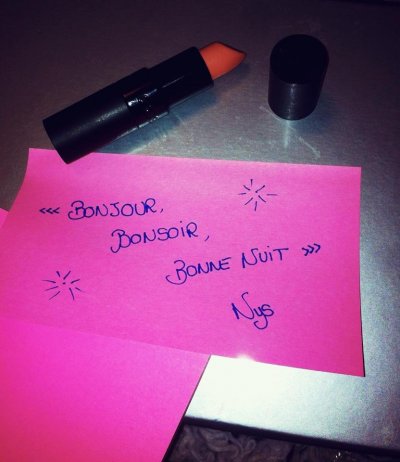 <<< BONJOUR,
BONSOIR,
BONNE NUIT >>>
Nys